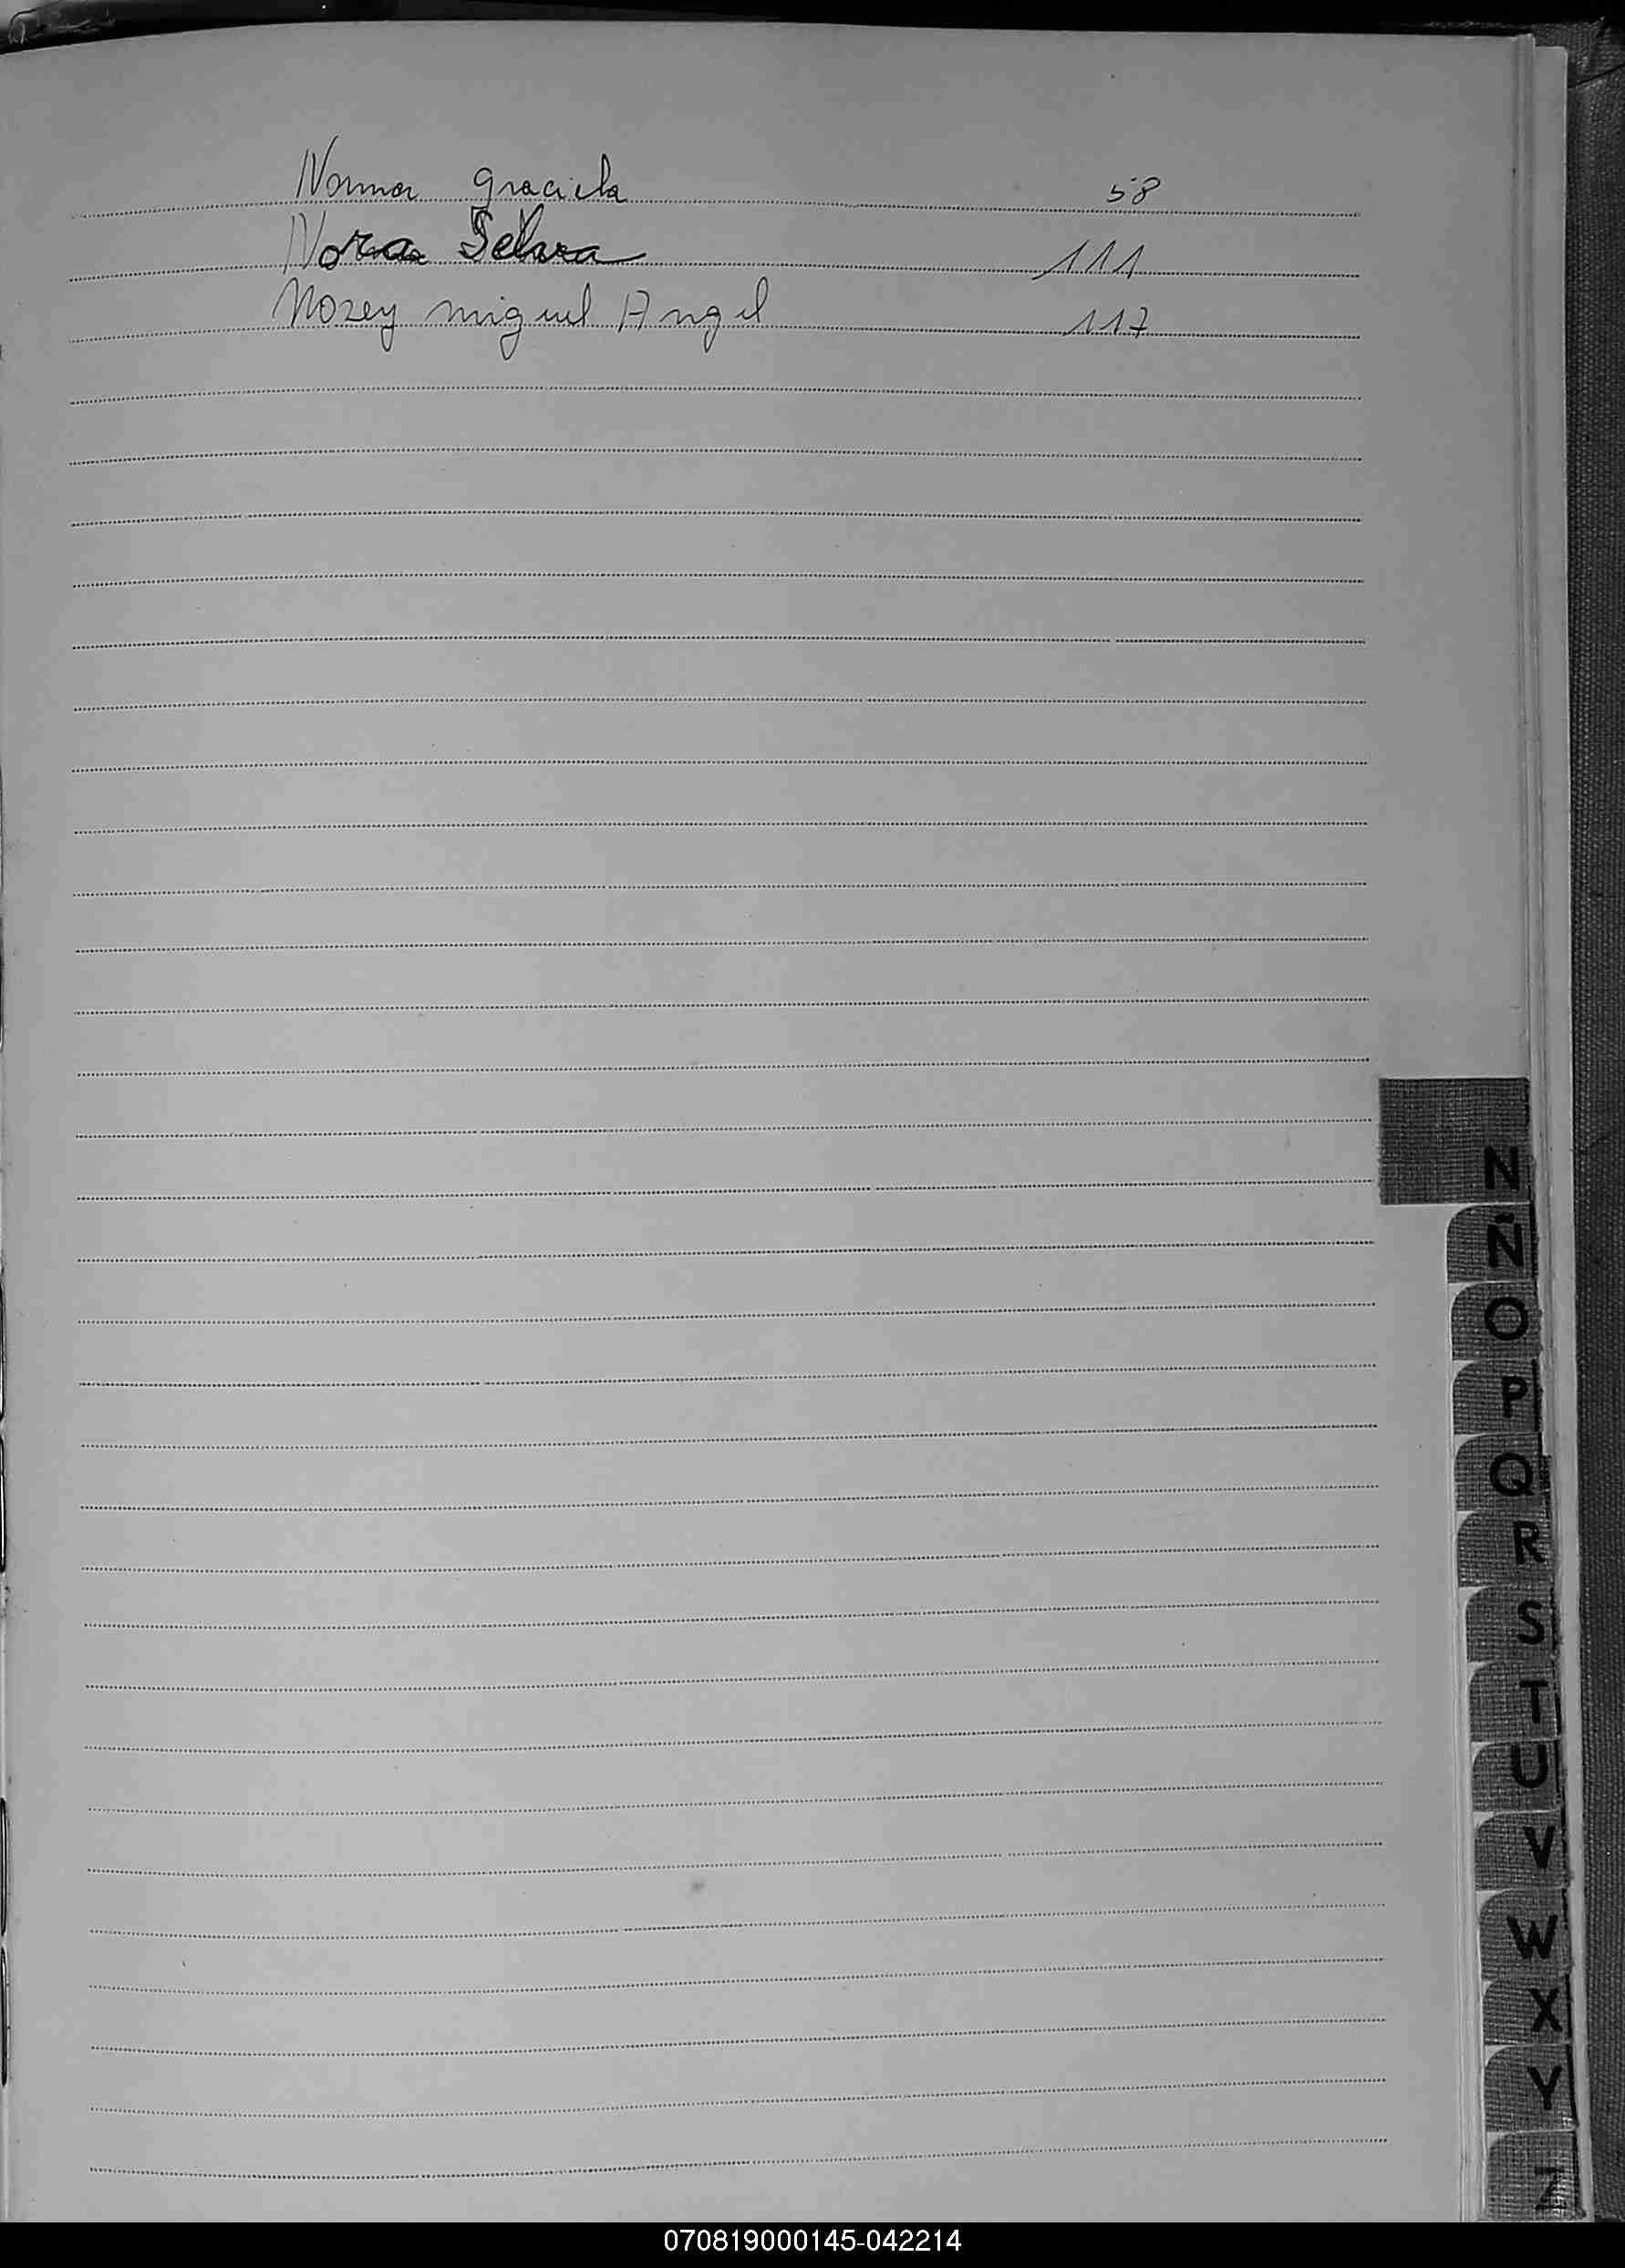 Norma Graciela 58
Nora 111
Nozey Miguel Angel 117
N
Ñ
O
P
Q
R
S
T
U
V
W
X
Y
Z
070819000145-042214